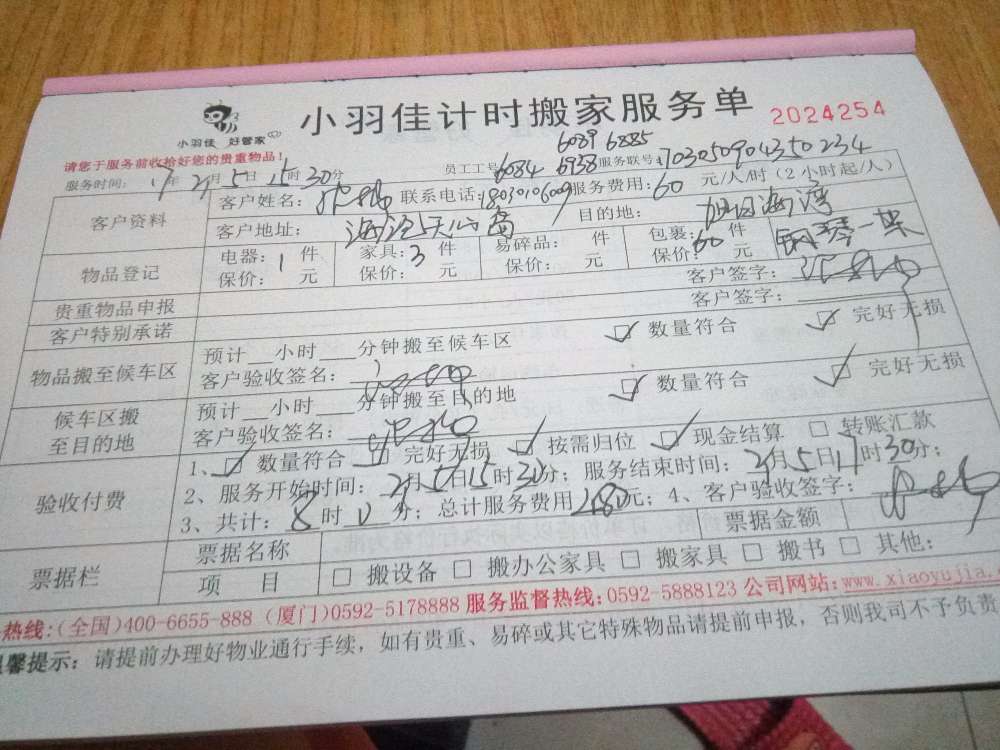 小羽佳 好管家
小羽佳计时搬家服务单
2024254
请您于服务前收拾好您的贵重物品!
6089 6885
服务时间: 17年 5日 15时30分 员工工号 6084 6938 服务联号:
客户资料 客户姓名: 联系电话: 服务费用: 60 元/人/时 (2小时起/人)
客户地址: 海沧天心岛 目的地: 旭日海湾
物品登记 电器: 1 件 家具: 3 件 易碎品: 件 包裹: 60 件 钢琴一架
保价: 元 保价: 元 保价: 元 保价: 元
贵重物品申报 客户签字:
客户特别承诺 客户签字:
物品搬至候车区 预计 小时 分钟搬至候车区 ☑ 数量符合 ☑ 完好无损
客户验收签名:
候车区搬至目的地 预计 小时 分钟搬至目的地 ☑ 数量符合 ☑ 完好无损
客户验收签名:
验收付费 1、☑ 数量符合 ☑ 完好无损 ☑ 按需归位 ☑ 现金结算 □ 转账汇款
2、服务开始时间: 月5日15时30分; 服务结束时间: 月5日17时30分;
3、共计: 8时0分; 总计服务费用480元; 4、客户验收签字:
票据栏 票据名称 票据金额
项 目 □ 搬设备 □ 搬办公家具 □ 搬家具 □ 搬书 □ 其他:
热线:(全国)400-6655-888 (厦门)0592-5178888 服务监督热线:0592-5888123 公司网站:www.xiaoyujia.
馨提示: 请提前办理好物业通行手续, 如有贵重、易碎或其它特殊物品请提前申报, 否则我司不予负责